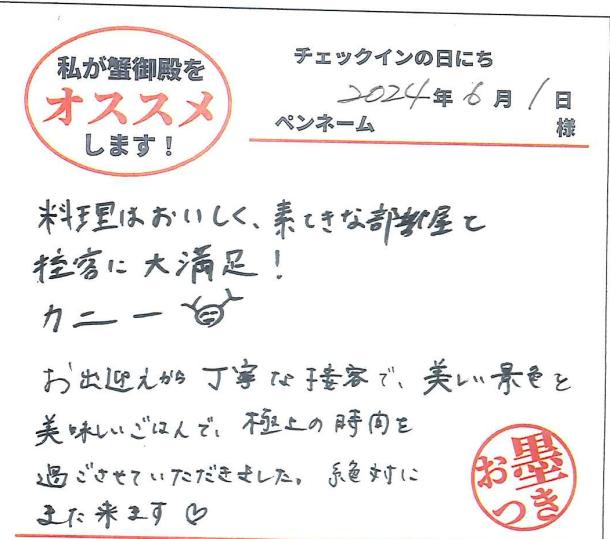 私が蟹御殿を
オススメ
します！
チェックインの日にち
2024年6月1日
ペンネーム 様
料理はおいしく、素てきな部屋と
接客に大満足！
カニー
お出迎えから丁寧な接客で、美しい景色と
美味しいごはんで、極上の時間を
過ごさせていただきました。絶対に
また来ます♡
お墨
つき